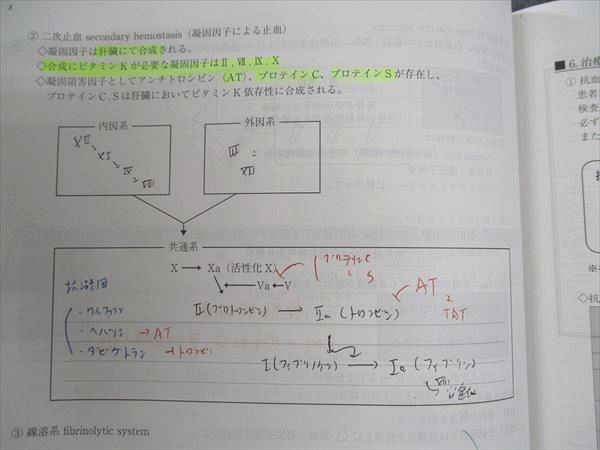 ② 二次止血 secondary hemostasis (凝固因子による止血)
◇凝固因子は肝臓にて合成される。
◇合成にビタミンKが必要な凝固因子はⅡ, Ⅶ, Ⅸ, X
◇凝固阻害因子としてアンチトロンビン(AT)、プロテインC、プロテインSが存在し、
プロテインC, Sは肝臓においてビタミンK依存性に合成される。
内因系
XII
XI
IX
VIII
外因系
III
VII
共通系
X → Xa (活性化X)
プロテインC
S
Va ← V
抗凝固
・ワルファリン
・ヘパリン → AT
・ダビガトラン → トロンビン
Ⅱ(プロトロンビン) → Ⅱa (トロンビン)
AT
TAT
I (フィブリノゲン) → Ia (フィブリン)
XIII
③ 線溶系 fibrinolytic system
■ 6. 治療
① 抗血
患者
検査
必ず
また
◇抗